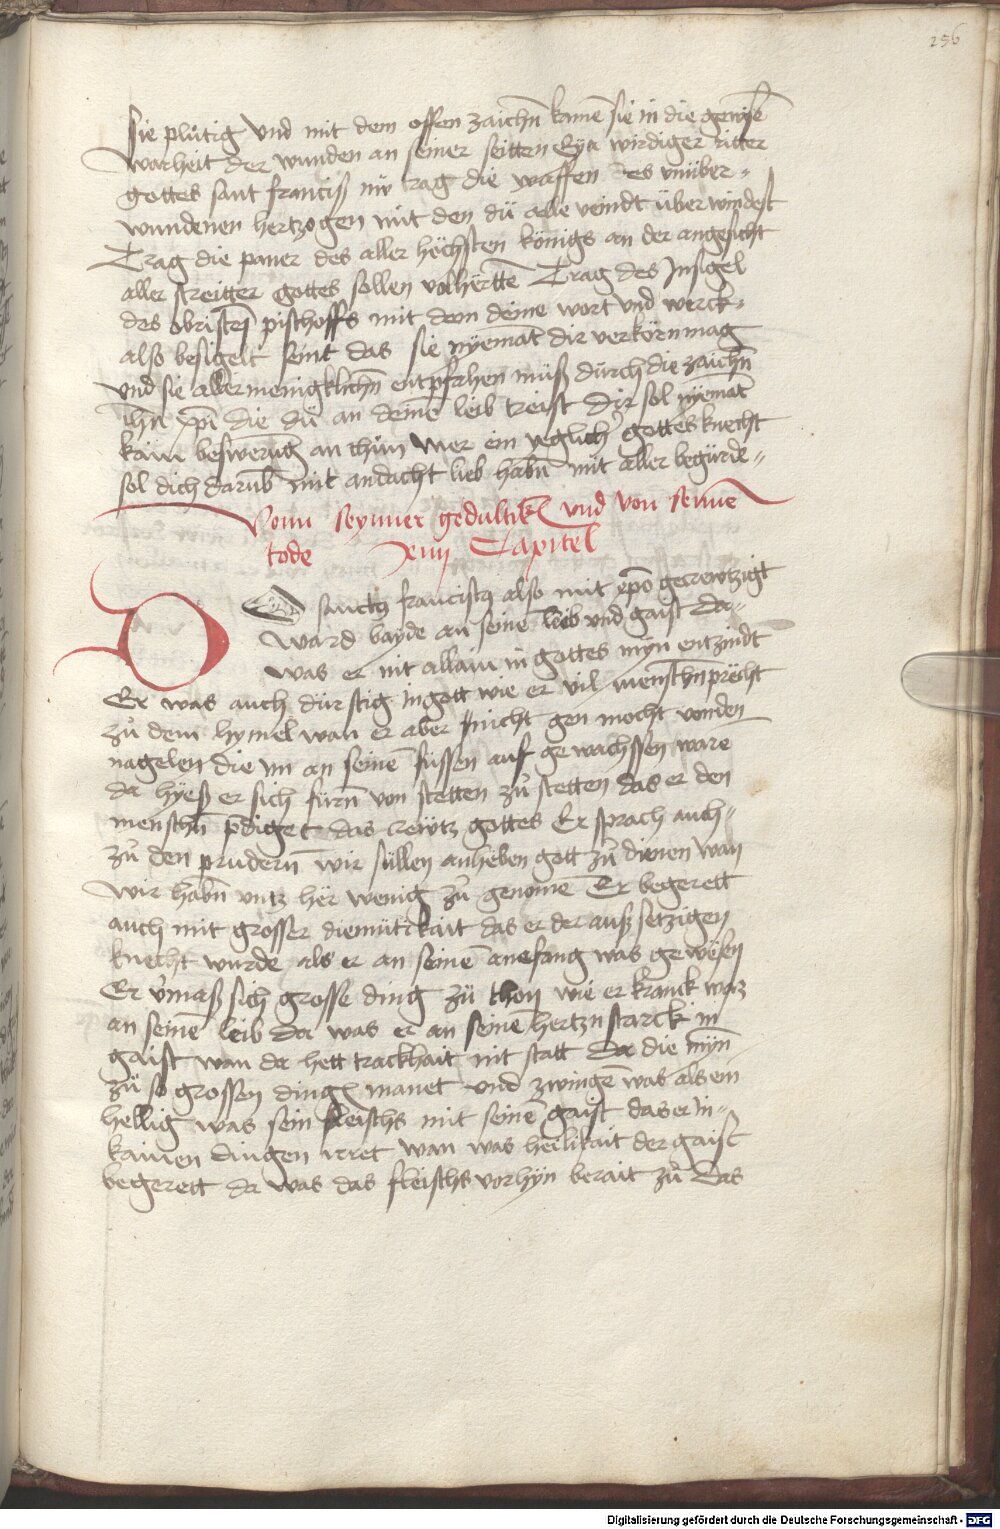 256
sie plůtig vnd mit dem offen zaichn̄ kamē sie in die gewisē
warheit der wunden an seiner seitten Eya wirdiger ritter
gottes sant franciß nw trag die waffen des vnüber-
wundenen hertzogen mit den dü alle veindt überwindest
Trag die paner des aller höchsten königs an der angesicht
aller streitter gottes sollen volhērttē Trag des Insigel
des obristen pischoffs mit dem deine wort vnd werck-
also besigelt seint das sie nyemāt dir verkörn mag
vnd sie allermenigklichn̄ entpfehen müß dürch die zaichn̄
ih̄u xp̄i die dü an deinē leib treist dir sol nyemāt
kain beswerūg an thün wer ein yeglich̄ gottes knecht
sol dich darūb mit andacht lieb habn̄ mit aller begürde-
Vonn seynner gedultik̄ vnd von seinnē
tode xiiij Capitel
DO sanctꝯ franciscꝯ also mit xp̄o gecreutzigt
ward bayde an seinē leib vnd gaist Do-
was er nit allain in gottes myn entzindt
Er was auch dürstig in gott wie er vil menschn̄ precht
zü dem hymel wan er aber nicht gen mocht von den
nagelen die im an seinē füssen auf gewachssen ware
da hyeß er sich fürn̄ von stetten zü stetten das er den
menschn̄ p̄diget das creütz gottes Er sprach auch-
zü den prudern̄ wir süllen anheben gott zü dienen wan
wir habn̄ vntz her wenig zü genomē Er begerett
auch mit grosser diemütikait das er der außsetzigen
knecht wurde als er an seinē anefang was gewesen
Er v̄maß sich grosse ding zü thon wie er kranck waz
an seinē leib da was er an seinē hertzn̄ starck in
gaist wan da hett trackhait nit statt Da die myn̄
zü so grossen dingē manet vnd zwingē was als ein
hellig was sein fleischs mit seinē gaist das er in-
kainen dingen irret wan was heilikait der gaist
begerett da was das fleischs vorhyn berait zü Das
Digitalisierung gefördert durch die Deutsche Forschungsgemeinschaft - DFG